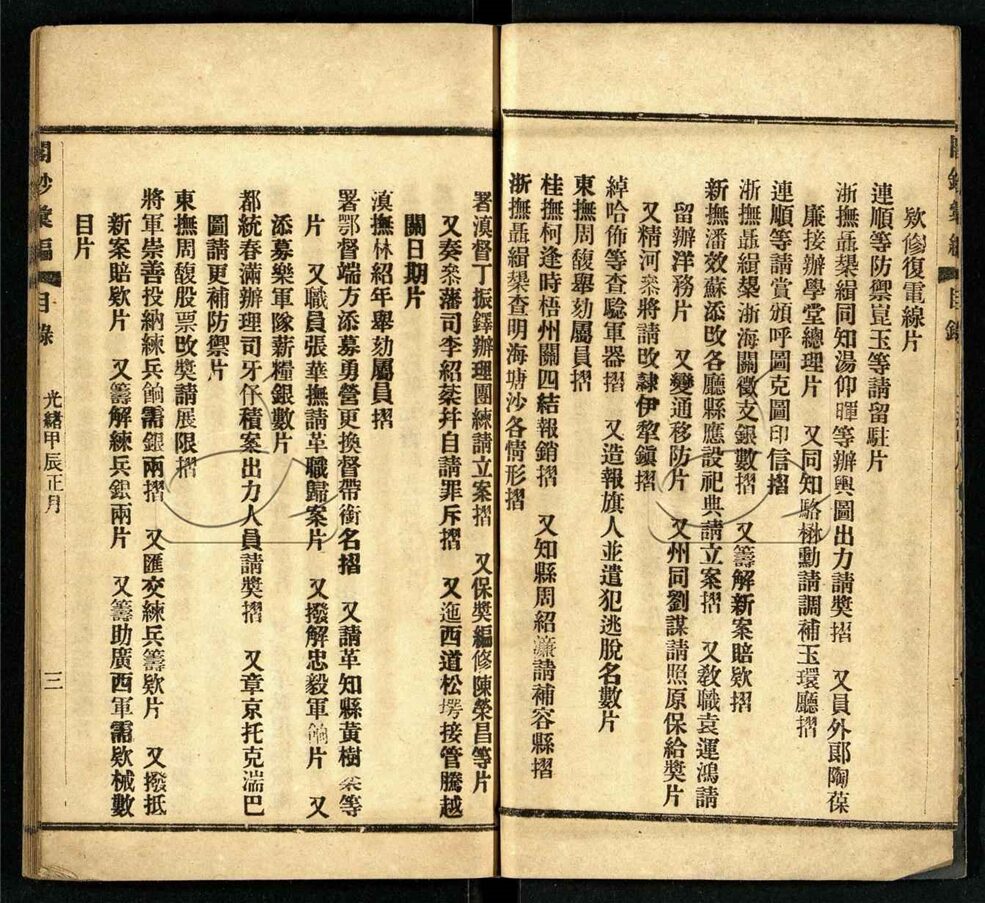 欵修復電線片
連順等防禦崑玉等請留駐片
浙撫聶槼緝同知湯仰暉等辦輿圖出力請獎摺　又員外郎陶葆
廉接辦學堂總理片　又同知駱楙勳請調補玉環廳摺
連順等請賞頒呼圖克圖印信摺
浙撫聶緝槼浙海關徵支銀數摺　又籌解新案賠欵摺
新撫潘效蘇添改各廳縣應設祀典請立案摺　又敎職袁運鴻請
留辦洋務片　又變通移防片　又州同劉謀請照原保給獎片
又精河叅將請改隷伊犂鎭摺
綽哈佈等查騐軍器摺　又造報旗人並遣犯逃脫名數片
東撫周馥舉劾屬員摺
桂撫柯逢時梧州關四結報銷摺　又知縣周紹濂請補容縣摺
浙撫聶緝槼查明海塘沙各情形摺
署滇督丁振鐸辦理團練請立案摺　又保獎編修陳榮昌等片
又奏叅藩司李紹棻幷自請罪斥摺　又迤西道松塄接管騰越
關日期片
滇撫林紹年舉劾屬員摺
署鄂督端方添募勇營更換督帶銜名摺　又請革知縣黃樹棻等
片　又職員張華撫請革職歸案片　又撥解忠毅軍餉片　又
添募樂軍隊薪糧銀數片
都統春滿辦理司牙伊積案出力人員請獎摺　又章京托克湍巴
圖請更補防禦片
東撫周馥股票改獎請展限摺
將軍崇善投納練兵餉需銀兩摺　又匯交練兵籌欵片　又撥抵
新案賠欵片　又籌解練兵銀兩片　又籌助廣西軍需欵械數
目片
閣鈔彙編　目錄　光緖甲辰正月　三